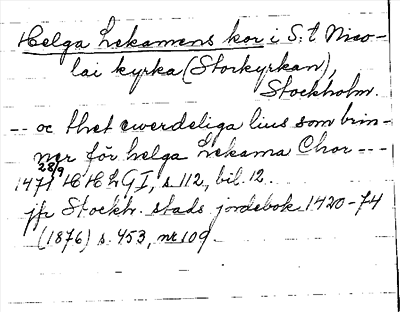 Helga Lekamens kor i S:t Nico-
lai kyrka (Storkyrkan),
Stockholm.
-- oc thet ewerdeliga lius som brin-
ner för helga Lekama Chor ---
28/9
1471 HHLGI, s. 112, bil. 12.
jfr Stockh. stads jordebok 1420-74
(1876) s. 453, nr 109.